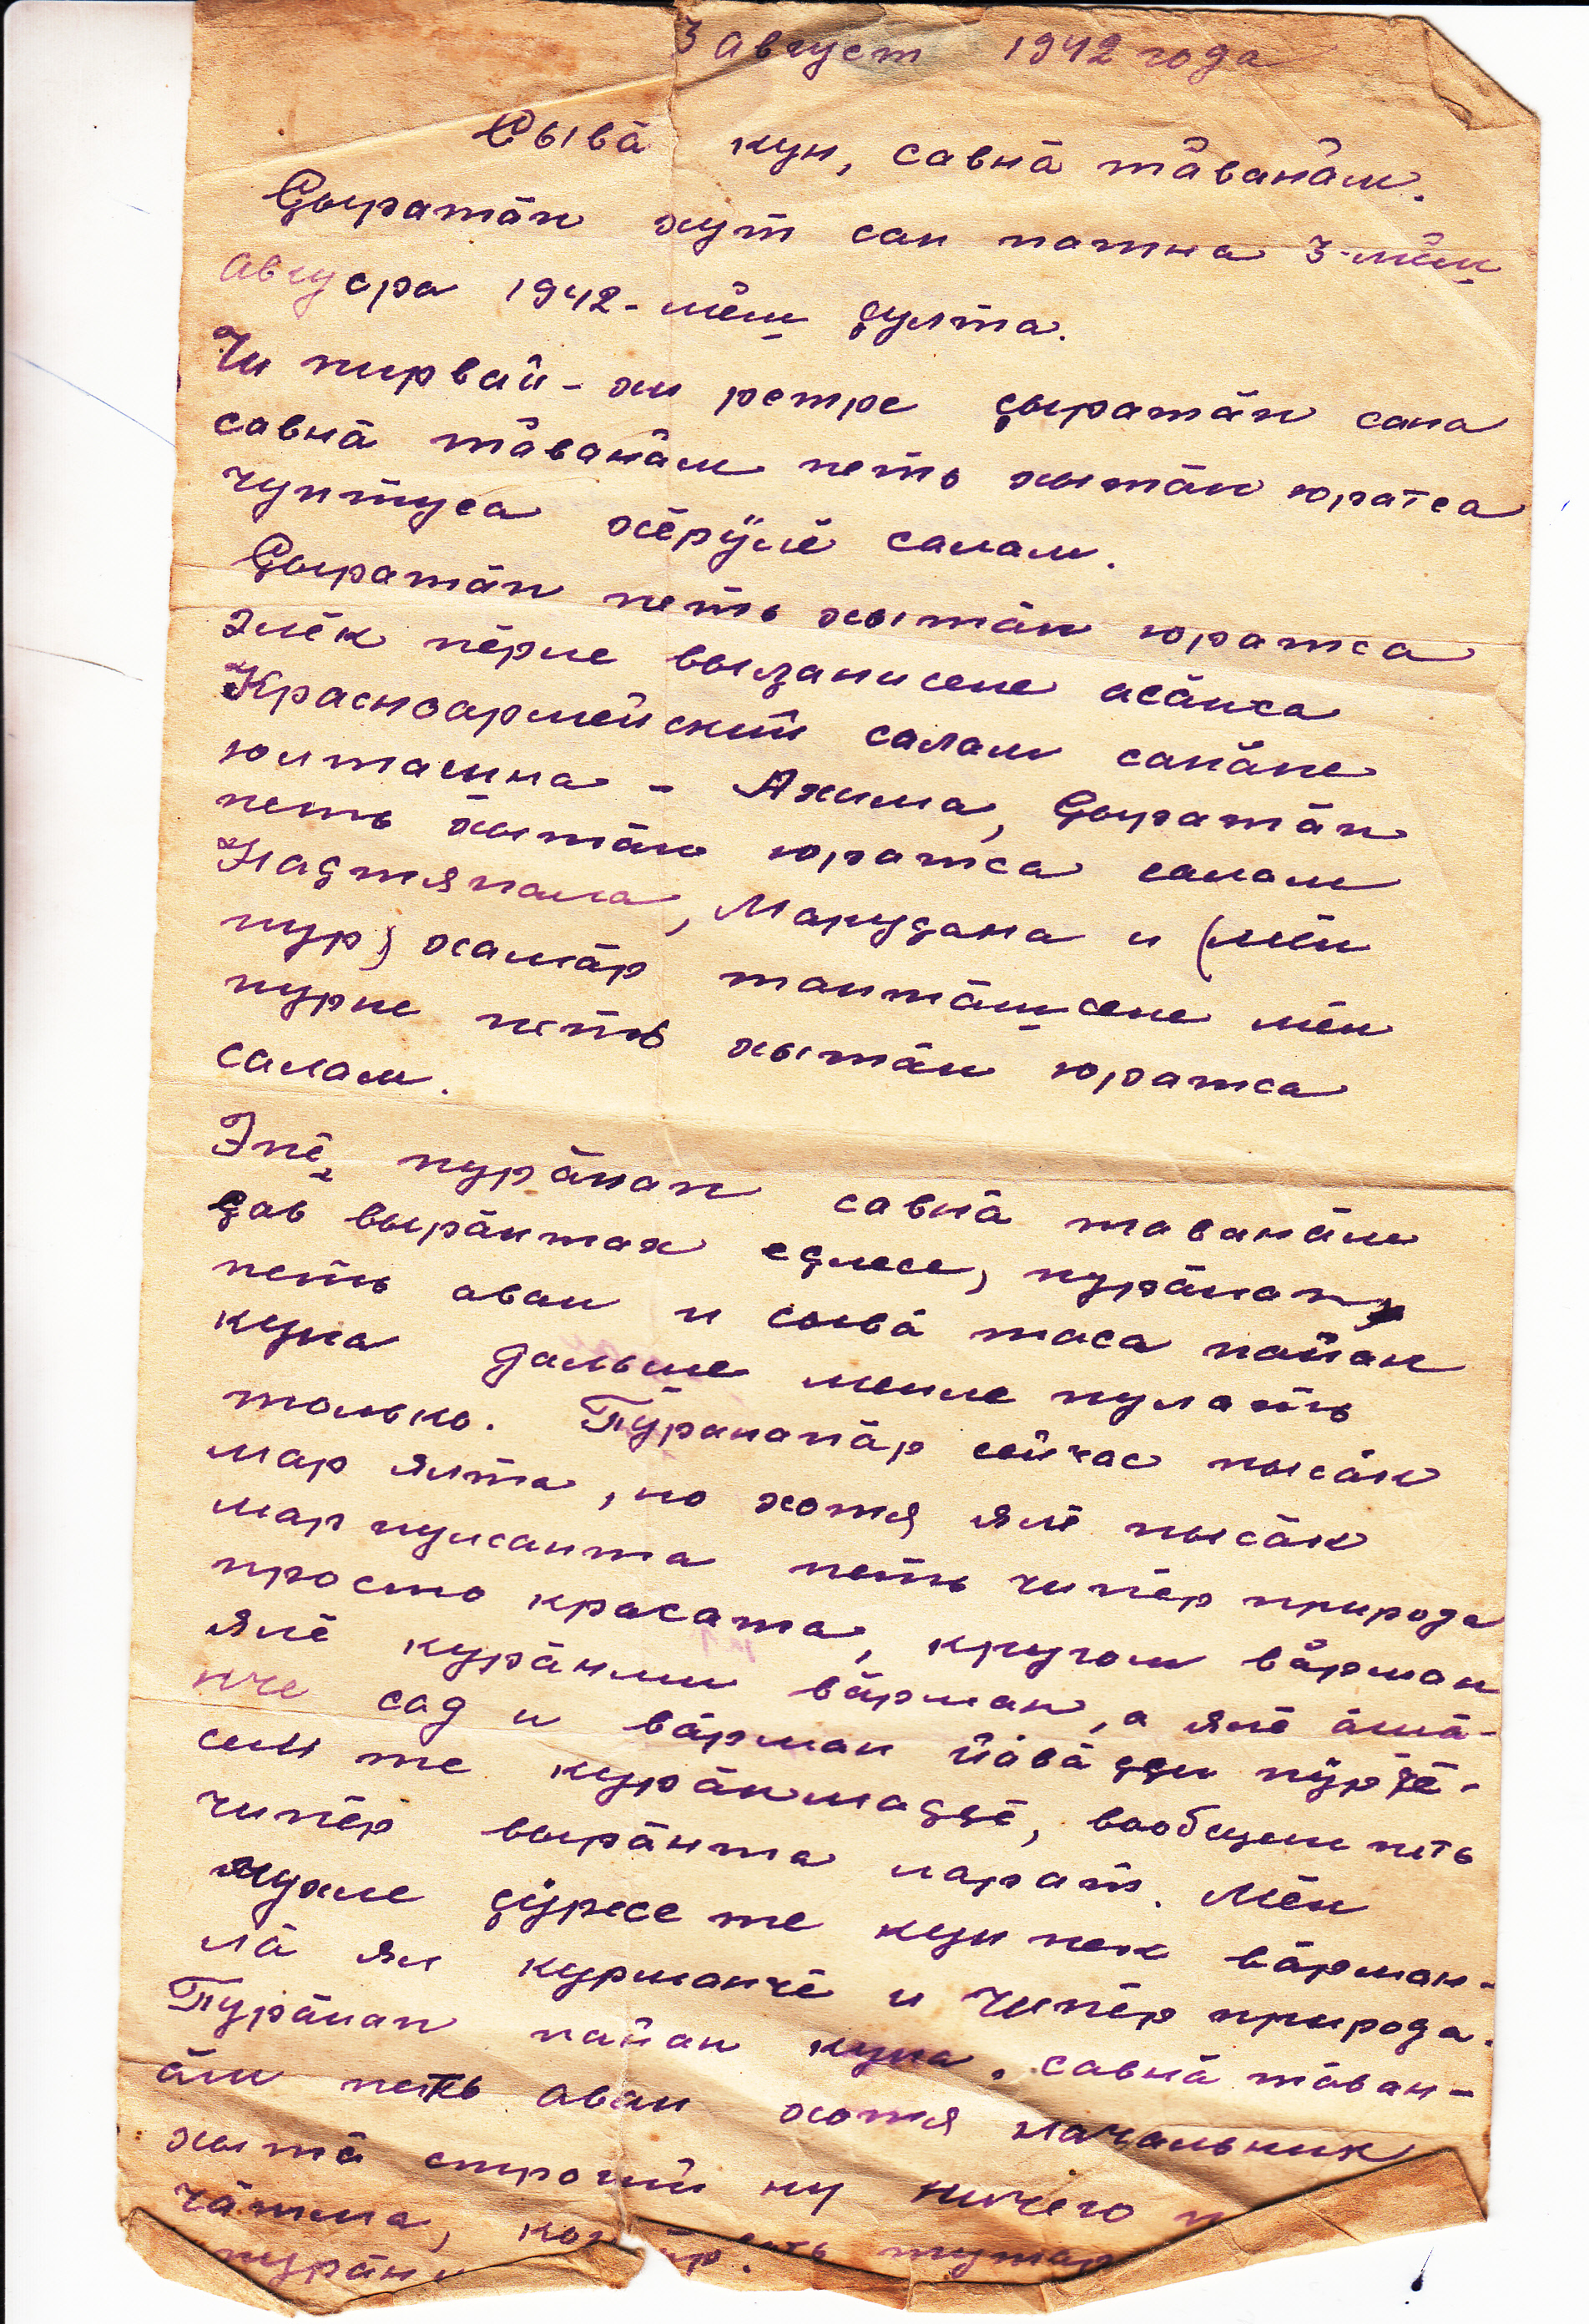 3 Август 1942 года
Сывă кун, савнă тăванăм.
Ҫыратăп хут сан патна 3-мĕш
Авгусра 1942-мĕш ҫулта.
Чи пирвай-хи ретре ҫыратăп сана
савнă тăванăм петь хытăн юратса
чуптуса хĕрӳлĕ салам.
Ҫыратăп петь хытăн юратса
элĕк пĕрле вылянисене асăнса
Красноармейский салам санăпе
юлташна - Ахима, Ҫыратăп
петь хытăн юратса салам
Надтяпала, Маруҫана и (мĕн
пур) хамăр тантăшсене мĕн
пурне петь хытăн юратса
салам.
Эпĕ пурăнап савнă таванăм
ҫав вырăнтах еҫлесе, пурăнап
петь аван и сывă таса паян
куна дальше менле пулать
только. Пурăнапăр сейчас пысăк
мар ялта, но хотя ялĕ пысăк
мар пулсанта петь чипĕр природа
просто красата, кругом вăрман
ялĕ курăнми вăрман, а ялĕ ăшă-
нче сад и вăрман йăвăҫҫи пӳрчĕ-
семте курăнмаҫҫĕ, вообщем петь
чипĕр вырăнта ларать. Мĕн
чухле ҫӳресе те кун пек вăрман-
лă ял курманчĕ и чипĕр природа.
Пурăнап паян куна, савнă тăван-
ăм петь аван хотя начальник
хытă строгий ну ничего
чăтма,